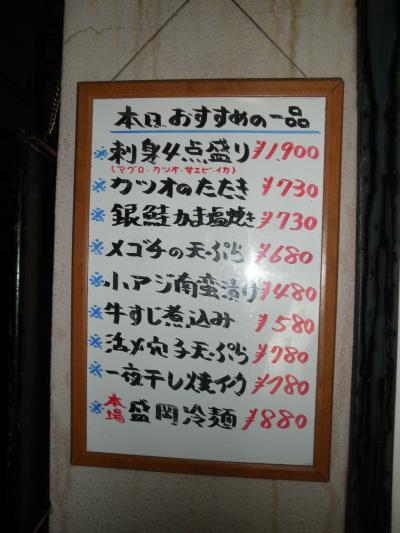 本日おすすめの一品
※刺身4点盛り ¥1,900
(マグロ・カツオ・甘エビ・イカ)
※カツオのたたき ¥730
※銀鮭かま塩焼き ¥730
※メゴチの天ぷら ¥680
※小アジ南蛮漬け ¥480
※牛すじ煮込み ¥580
※活〆穴子天ぷら ¥780
※一夜干し焼イカ ¥780
※本場盛岡冷麺 ¥880